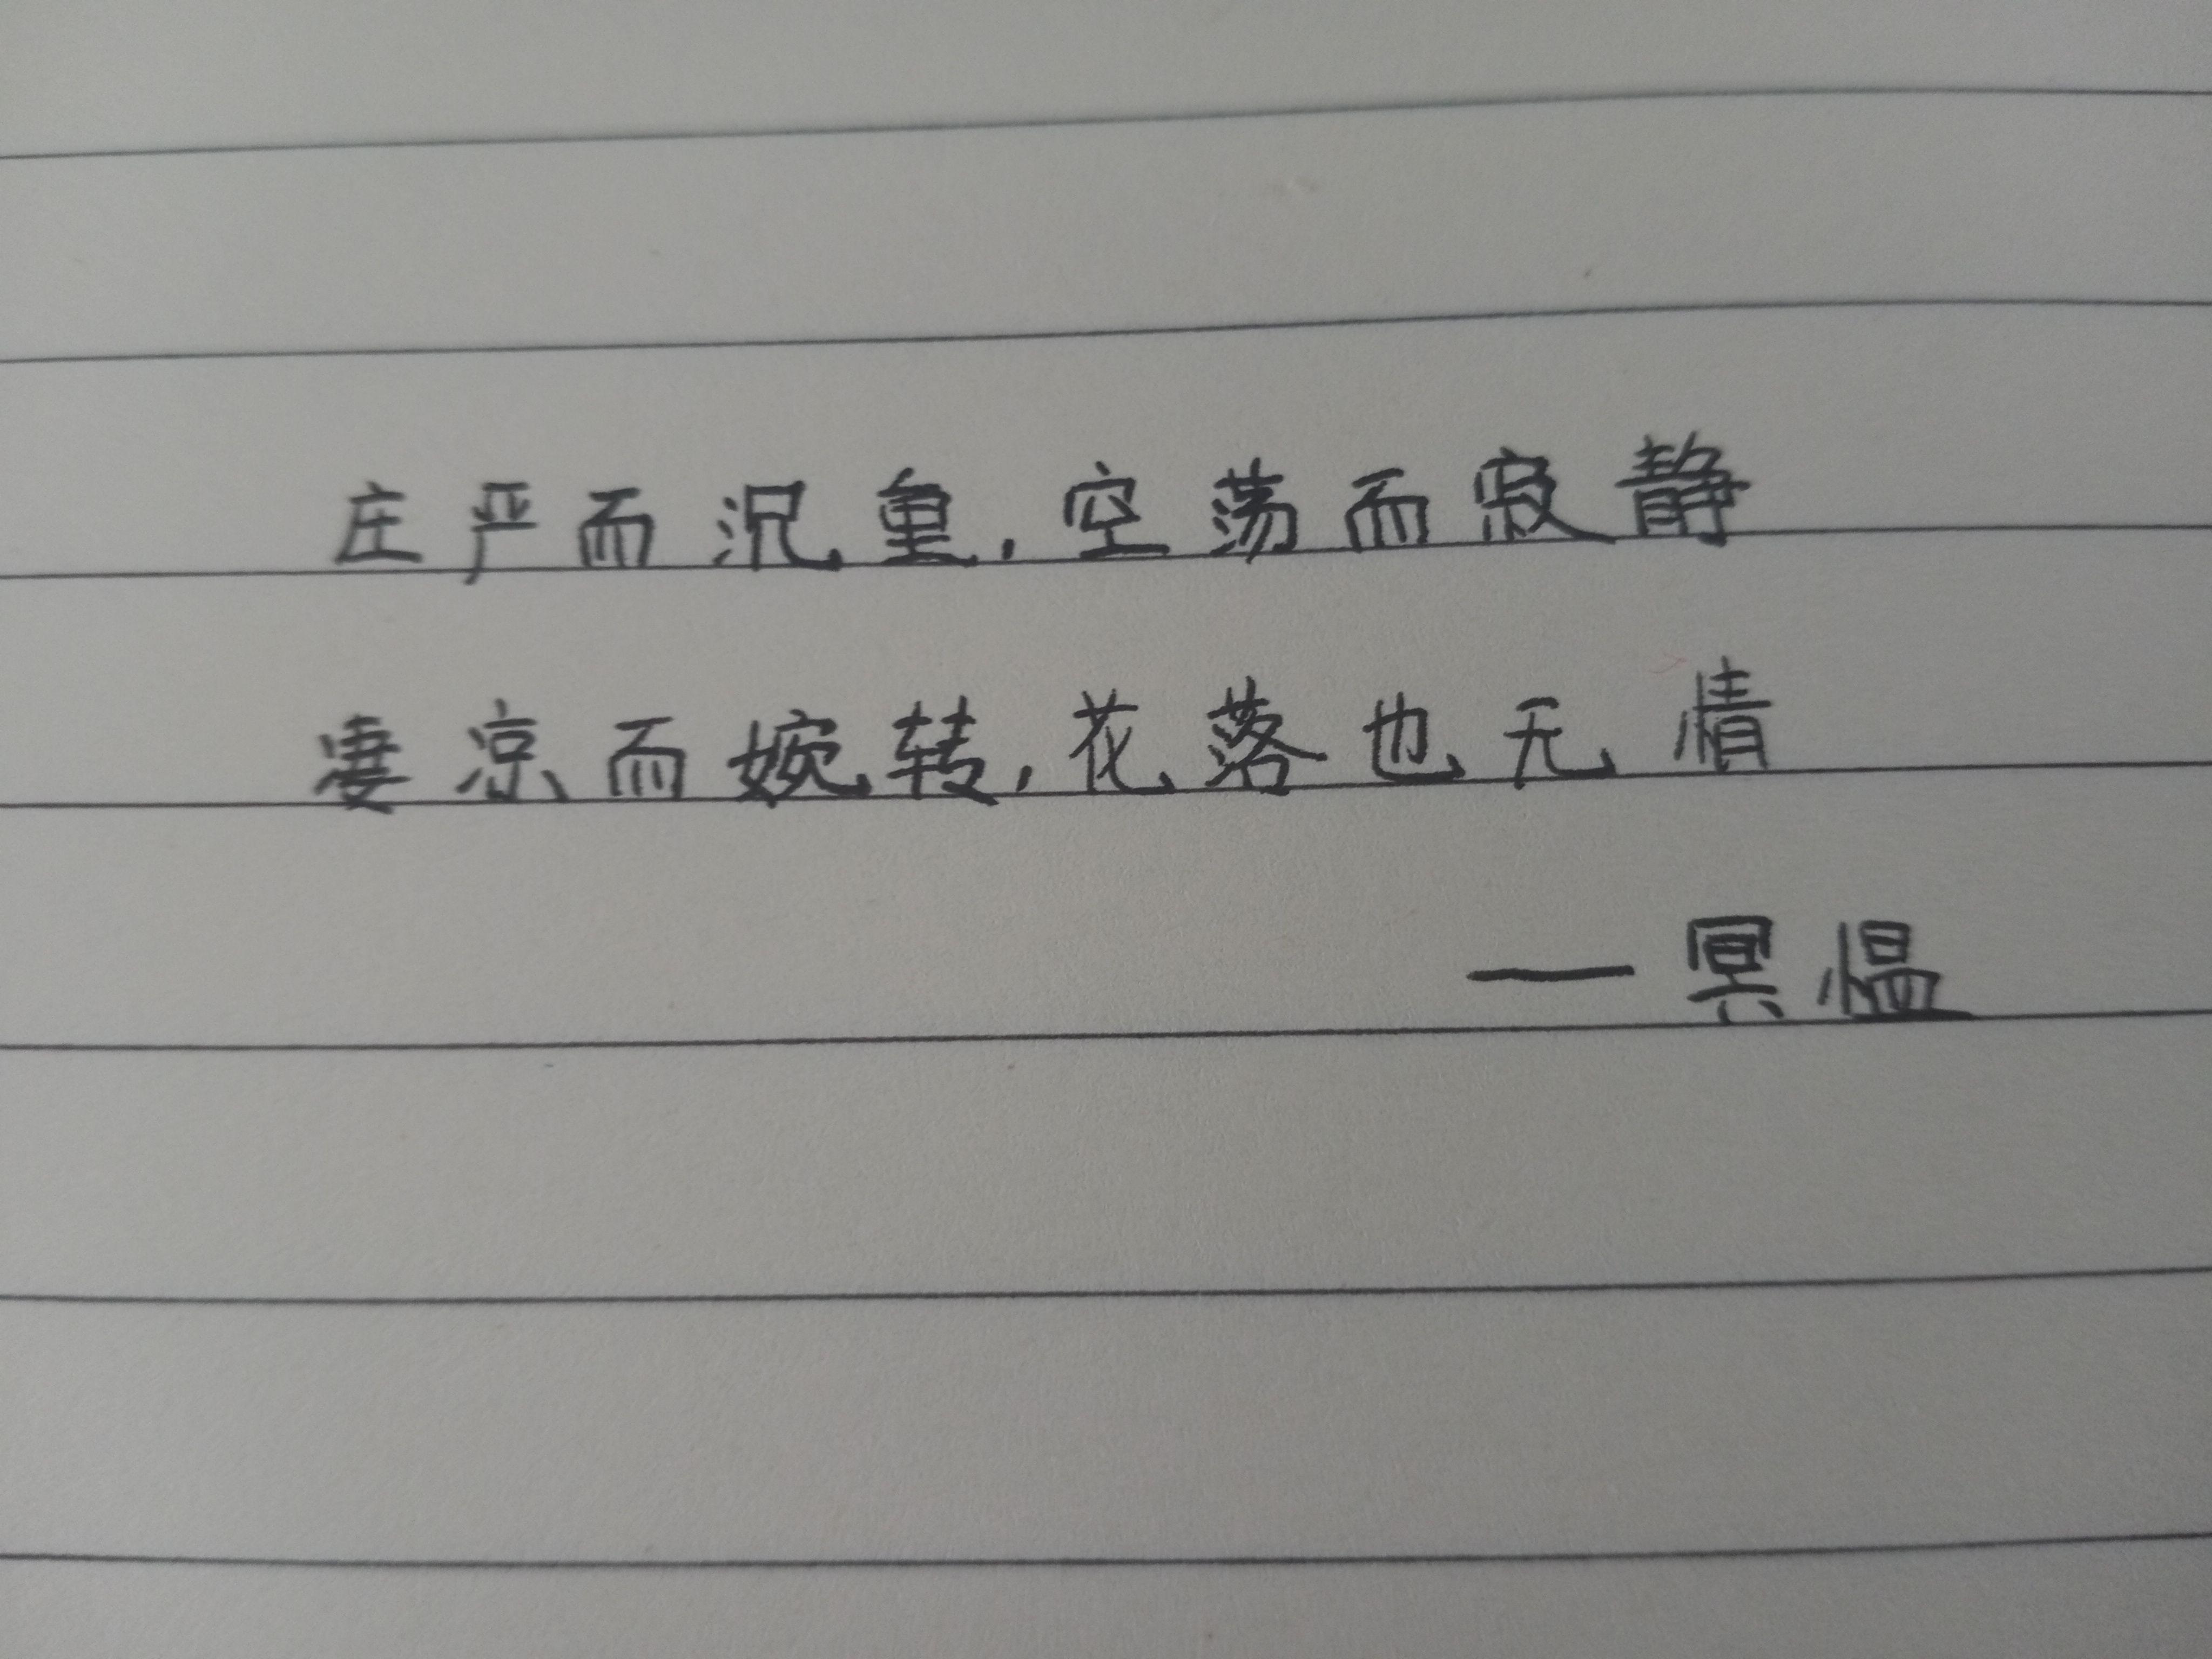 庄严而沉重,空荡而寂静
凄凉而婉转,花落也无情
—冥愠